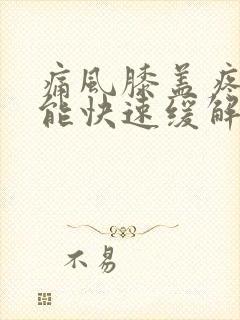 痛风膝盖疼
能快速缓解
不易